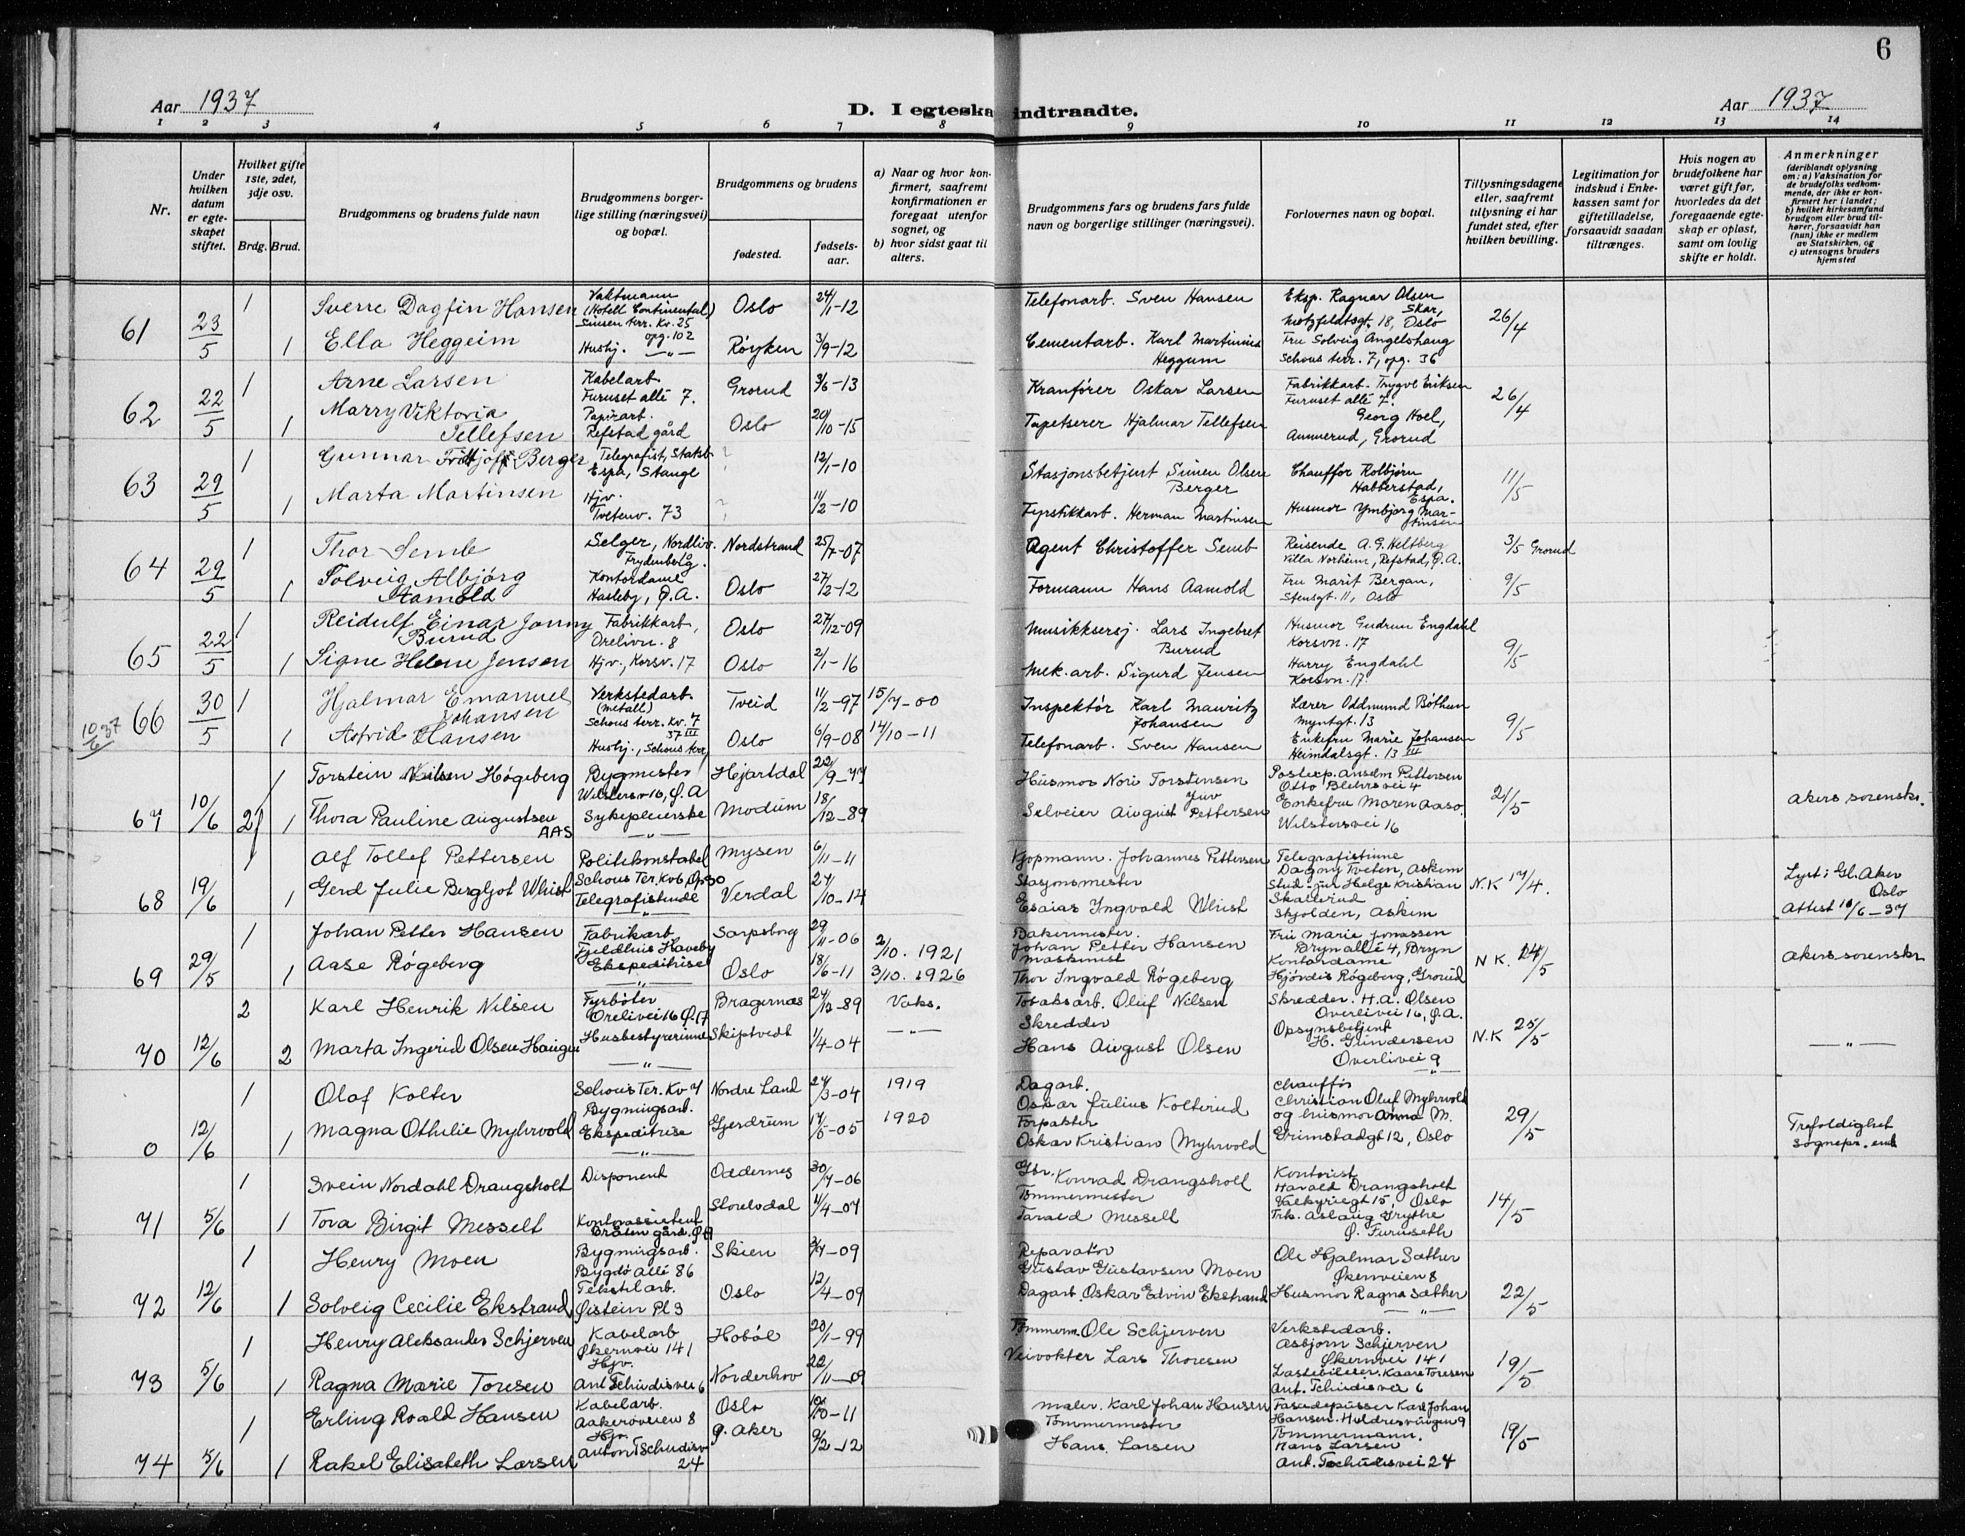 6
Aar 1937
D. I egteska
indtraadte.
Aar 1937
1 2 3 4 5 6 7 8 9 10 11 12 13 14
Nr.
Under hvilken datum er egteskapet stiftet.
Hvilket gifte 1ste, 2det, 3dje osv.
Brdg. Brud.
Brudgommens og brudens fulde navn
Brudgommens borgerlige stilling (næringsvei) og bopæl.
Brudgommens og brudens
fødested.
fødselsaar.
a) Naar og hvor konfirmert, saafremt konfirmationen er foregaat utenfor sognet, og
b) hvor sidst gaat til alters.
Brudgommens fars og brudens fars fulde navn og borgerlige stillinger (næringsvei).
Forlovernes navn og bopæl.
Tillysningsdagene eller, saafremt tillysning ei har fundet sted, efter hvilken bevilling.
Legitimation for indskud i Enkekassen samt for giftetilladelse, forsaavidt saadan tiltrænges.
Hvis nogen av brudefolkene har været gift før, hvorledes da det foregaaende egteskap er opløst, samt om lovlig skifte er holdt.
Anmerkninger
(deriblandt oplysning om: a) Vaksination for de brudefolks vedkommende, der ikke er konfirmert her i landet; b) hvilket kirkesamfund brudgom eller brud tilhører, forsaavidt han (hun) ikke er medlem av Statskirken, og c) utensogns bruders hjemsted
61 23/5 1 Sverre Dagfin Hansen Vaktmann (Hotell Continental) Sinsen terr. Kv. 25 opg. 102 Oslo 24/1-12 Telefonarb. Sven Hansen Eksp. Ragnar Olsen Skar, Motzfeldtsgt. 18, Oslo 26/4
1 Ella Heggeim Husbj. —"— Røyken 3/9-12 Cementarb. Karl Martinius Heggum Fru Solveig Angelshaug Schous terr. 7, opg. 36
62 22/5 1 Arne Larsen Kabelarb. Furuset allé 7. Grorud 3/6-13 Kranfører Oskar Larsen Fabrikkarb. Trygve Eriksen Furuset allé 7. 26/4
1 Marry Viktoria Tellefsen Papirarb. Refstad gård Oslo 20/10-15 Tapetserer Hjalmar Tellefsen Georg Hoel, Ammerud, Grorud
63 29/5 1 Gunnar Fritjof Berger Telegrafist, Statsb. Espa, Stange ? 12/1-10 Stasjonsbetjent Simen Olsen Berger Chauffør Kolbjørn Habberstad, Espa. 11/5
1 Marta Martinsen Hjv. Tvetenv. 73 ? 11/2-10 Fyrstikkarb. Herman Martinsen Husmor Ymbjørg Martinsen
64 29/5 1 Thor Semb Selger, Nordliv. Frydenberg. Nordstrand 25/7-07 Agent Christoffer Semb Reisende A. G. Heltberg Villa Norheim, Refstad, Ø.A. 3/5 Grorud
1 Solveig Albjørg Aamold Kontordame Hasleby, Ø.A. Oslo 27/2-12 Formann Hans Aamold Fru Marit Bergan, Stensgt. 11, Oslo 9/5
65 22/5 1 Reidulf Einar Jonny Burud Fabrikkarb., Orelivn. 8 Oslo 27/12-09 Musikksersj. Lars Ingebret Burud Husmor Gudrun Engdahl Korsvn. 17 9/5
1 Signe Helene Jensen Hjv., Korsv. 17 Oslo 2/1-16 Mek. arb. Sigurd Jensen Harry Engdahl Korsvn. 17
10/6 37 66 30/5 1 Hjalmar Emanuel Johansen Verkstedarb. (metall) Schous terr. Kv. 7 37 III Tveid 11/2-97 15/7-00 Inspektør Karl Mauritz Johansen Lærer Oddmund Bøthun Myntgt. 13 9/5
1 Astrid Hansen Husbj., Schous terr. Oslo 6/9-08 14/10-11 Telefonarb. Sven Hansen Enkefru Marie Johansen Heimdalsgt. 13 III
67 10/6 2 Torstein Nilsen Høgeberg Bygmester Wilsters v 16, Ø.A Hjartdal 22/9-77 Husmor Nori Torstensen Juv Postexp. Anselm Pettersen Otto Blehrs vei 4 21/5 Akers sorenskr.
1 Thora Pauline Augustsen AAS Sykepleierske —"— Modum 18/12-89 Selveier August Pettersen Enkefru Maren Aaso. Wilstersvei 16
68 19/6 1 Alf Tollef Pettersen Politikonstabel Schous Ter. Kv 6, Op 30 Mysen 6/11-11 Kjøpmann. Johannes Pettersen Telegrafistinne Dagny Tveten, Askim N.K 17/4. Lyst i Gl. Aker Oslo
1 Gerd Julie Bergljot Whist Telegrafistinde —"— Verdal 27/10-14 Stasjonsmester Esaias Ingvald Whist Stud. jur Helge Kristian Skallerud Skjolden, Askim Attest 10/6-37
69 29/5 1 Johan Petter Hansen Fabrikarb. Fjeldhus Haveby Sarpsborg 29/11-06 2/10. 1921 Bakermester. Johan Petter Hansen Fru Marie Jonassen Bryn allé 4, Bryn N K. 24/5 Akers sorenskr
1 Aase Røgeberg Ekspeditrise —"— Oslo 18/6-11 3/10. 1926 Maskinist Thor Ingvald Røgeberg Kontordame Hjørdis Røgeberg, Grorud
70 12/6 2 Karl Henrik Nilsen Fyrbøter Orelivei 16 Ø.17 Bragernæs 27/12-89 Vaks. Tobaksarb. Oluf Nilsen Skredder. H.A. Olsen Overlivei 16, Ø.A. N.K 25/5 —"—
2 Marta Ingerid Olsen Haugen Husbestyrerinne —"— Skiptvedt 1/4-04 —"— Skredder Hans August Olsen Opsynsbetjent H. Gundersen Overlivei 9
0 12/6 1 Olaf Kolter Schous Ter. Kv 7 Bygningsarb. Nordre Land 27/3-04 1919 Dagarb. Oskar Julius Kolterud Chauffør Christian Oluf Myhrvold og husmor Anna M. Grimstadgt 12, Oslo 29/5 Trefoldighet sognepr. emb
1 Magna Othelie Myhrvold Ekspeditrise —"— Gjerdrum 17/5-05 1920 Forpakter Oskar Kristian Myhrvold
71 5/6 1 Svein Nordahl Drangsholt Disponent Oddernes 30/7-06 Gbr. Konrad Drangsholt Kontorist Harald Drangsholt Valkyriegt 15, Oslo 14/5
1 Tora Birgit Messelt Kontorassistent Bråten gård. Ø A Storelvdal 11/4-07 Tømmermester Tarald Messelt Frk. Aslaug Grythe Ø. Furuseth
72 12/6 1 Henry Moen Bygningsarb. Bygdø Allé 86 Skien 3/7-09 Reparatør Gustav Gustavsen Moen Ole Hjalmar Sæther Økernveien 8 22/5
1 Solveig Cecilie Ekstrand Tekstilarb. Øistein Pl 3 Oslo 12/4-09 Dagarb. Oskar Edvin Ekstrand Husmor Ragna Sæther —"—
73 5/6 1 Henry Aleksander Schjerven Kabelarb Økernvei 141 Hobøl 20/1-99 Tømmerm. Ole Schjerven Verkstedarb. Asbjørn Schjerven Økernvei 141 19/5
1 Ragna Marie Toresen Hjv. Ant Tchudisvei 6 Norderhov 22/11-09 Veivokter Lars Thoresen Lastebileier. Kaare Toresen Ant. Tchudis vei 6
74 5/6 1 Erling Roald Hansen Kabelarb. Aakerøveien 8 Oslo 19/10-11 Maler. Karl Johan Hansen Fasadepusser Karl Johan Hansen. Huldresvingen 9 19/5
1 Rakel Elisabeth Larsen Hjv. Anton Tschudisv 24 Ø. Aker 9/2-12 Tømmermester Hans. Larsen Tømmermann. Hans Larsen Ant. Tschudisvei 24